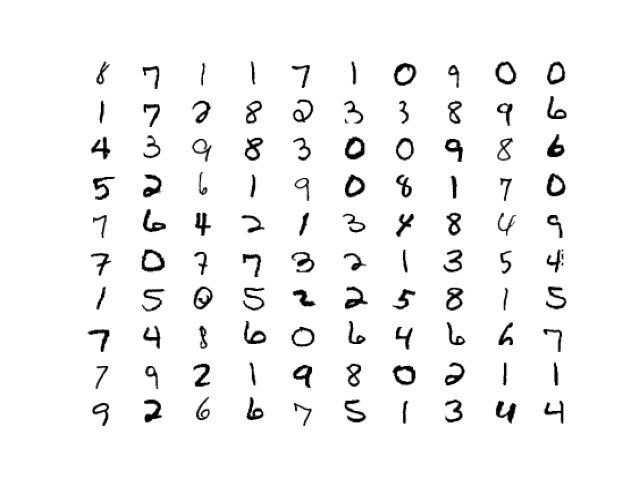 8 7 1 1 7 1 0 9 0 0
1 7 2 8 2 3 3 8 9 6
4 3 9 8 3 0 0 9 8 6
5 2 6 1 9 0 8 1 7 0
7 6 4 2 1 3 4 8 4 9
7 0 7 7 3 2 1 3 5 4
1 5 0 5 2 2 5 8 1 5
7 4 8 6 0 6 4 6 6 7
7 9 2 1 9 8 0 2 1 1
9 2 6 6 7 5 1 3 4 4